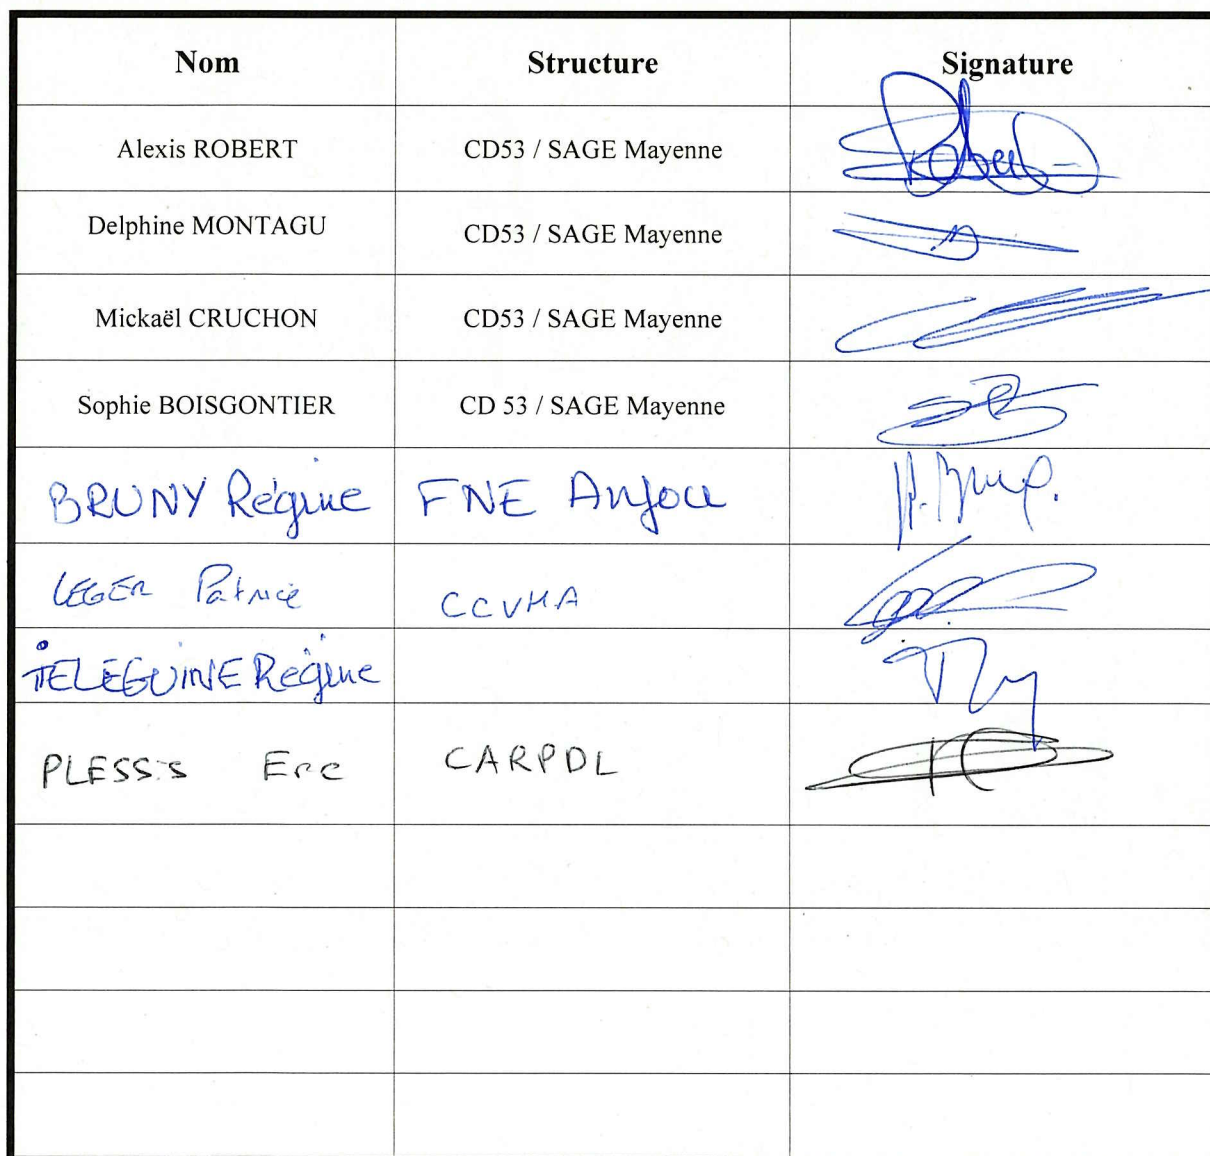 Nom Structure Signature
Alexis ROBERT CD53 / SAGE Mayenne Robert
Delphine MONTAGU CD53 / SAGE Mayenne
Mickaël CRUCHON CD53 / SAGE Mayenne
Sophie BOISGONTIER CD 53 / SAGE Mayenne
BRUNY Régine FNE Anjou
LEGER Patrice CCVHA
TELEGUINE Régine
PLESSIS Eric CARPDL